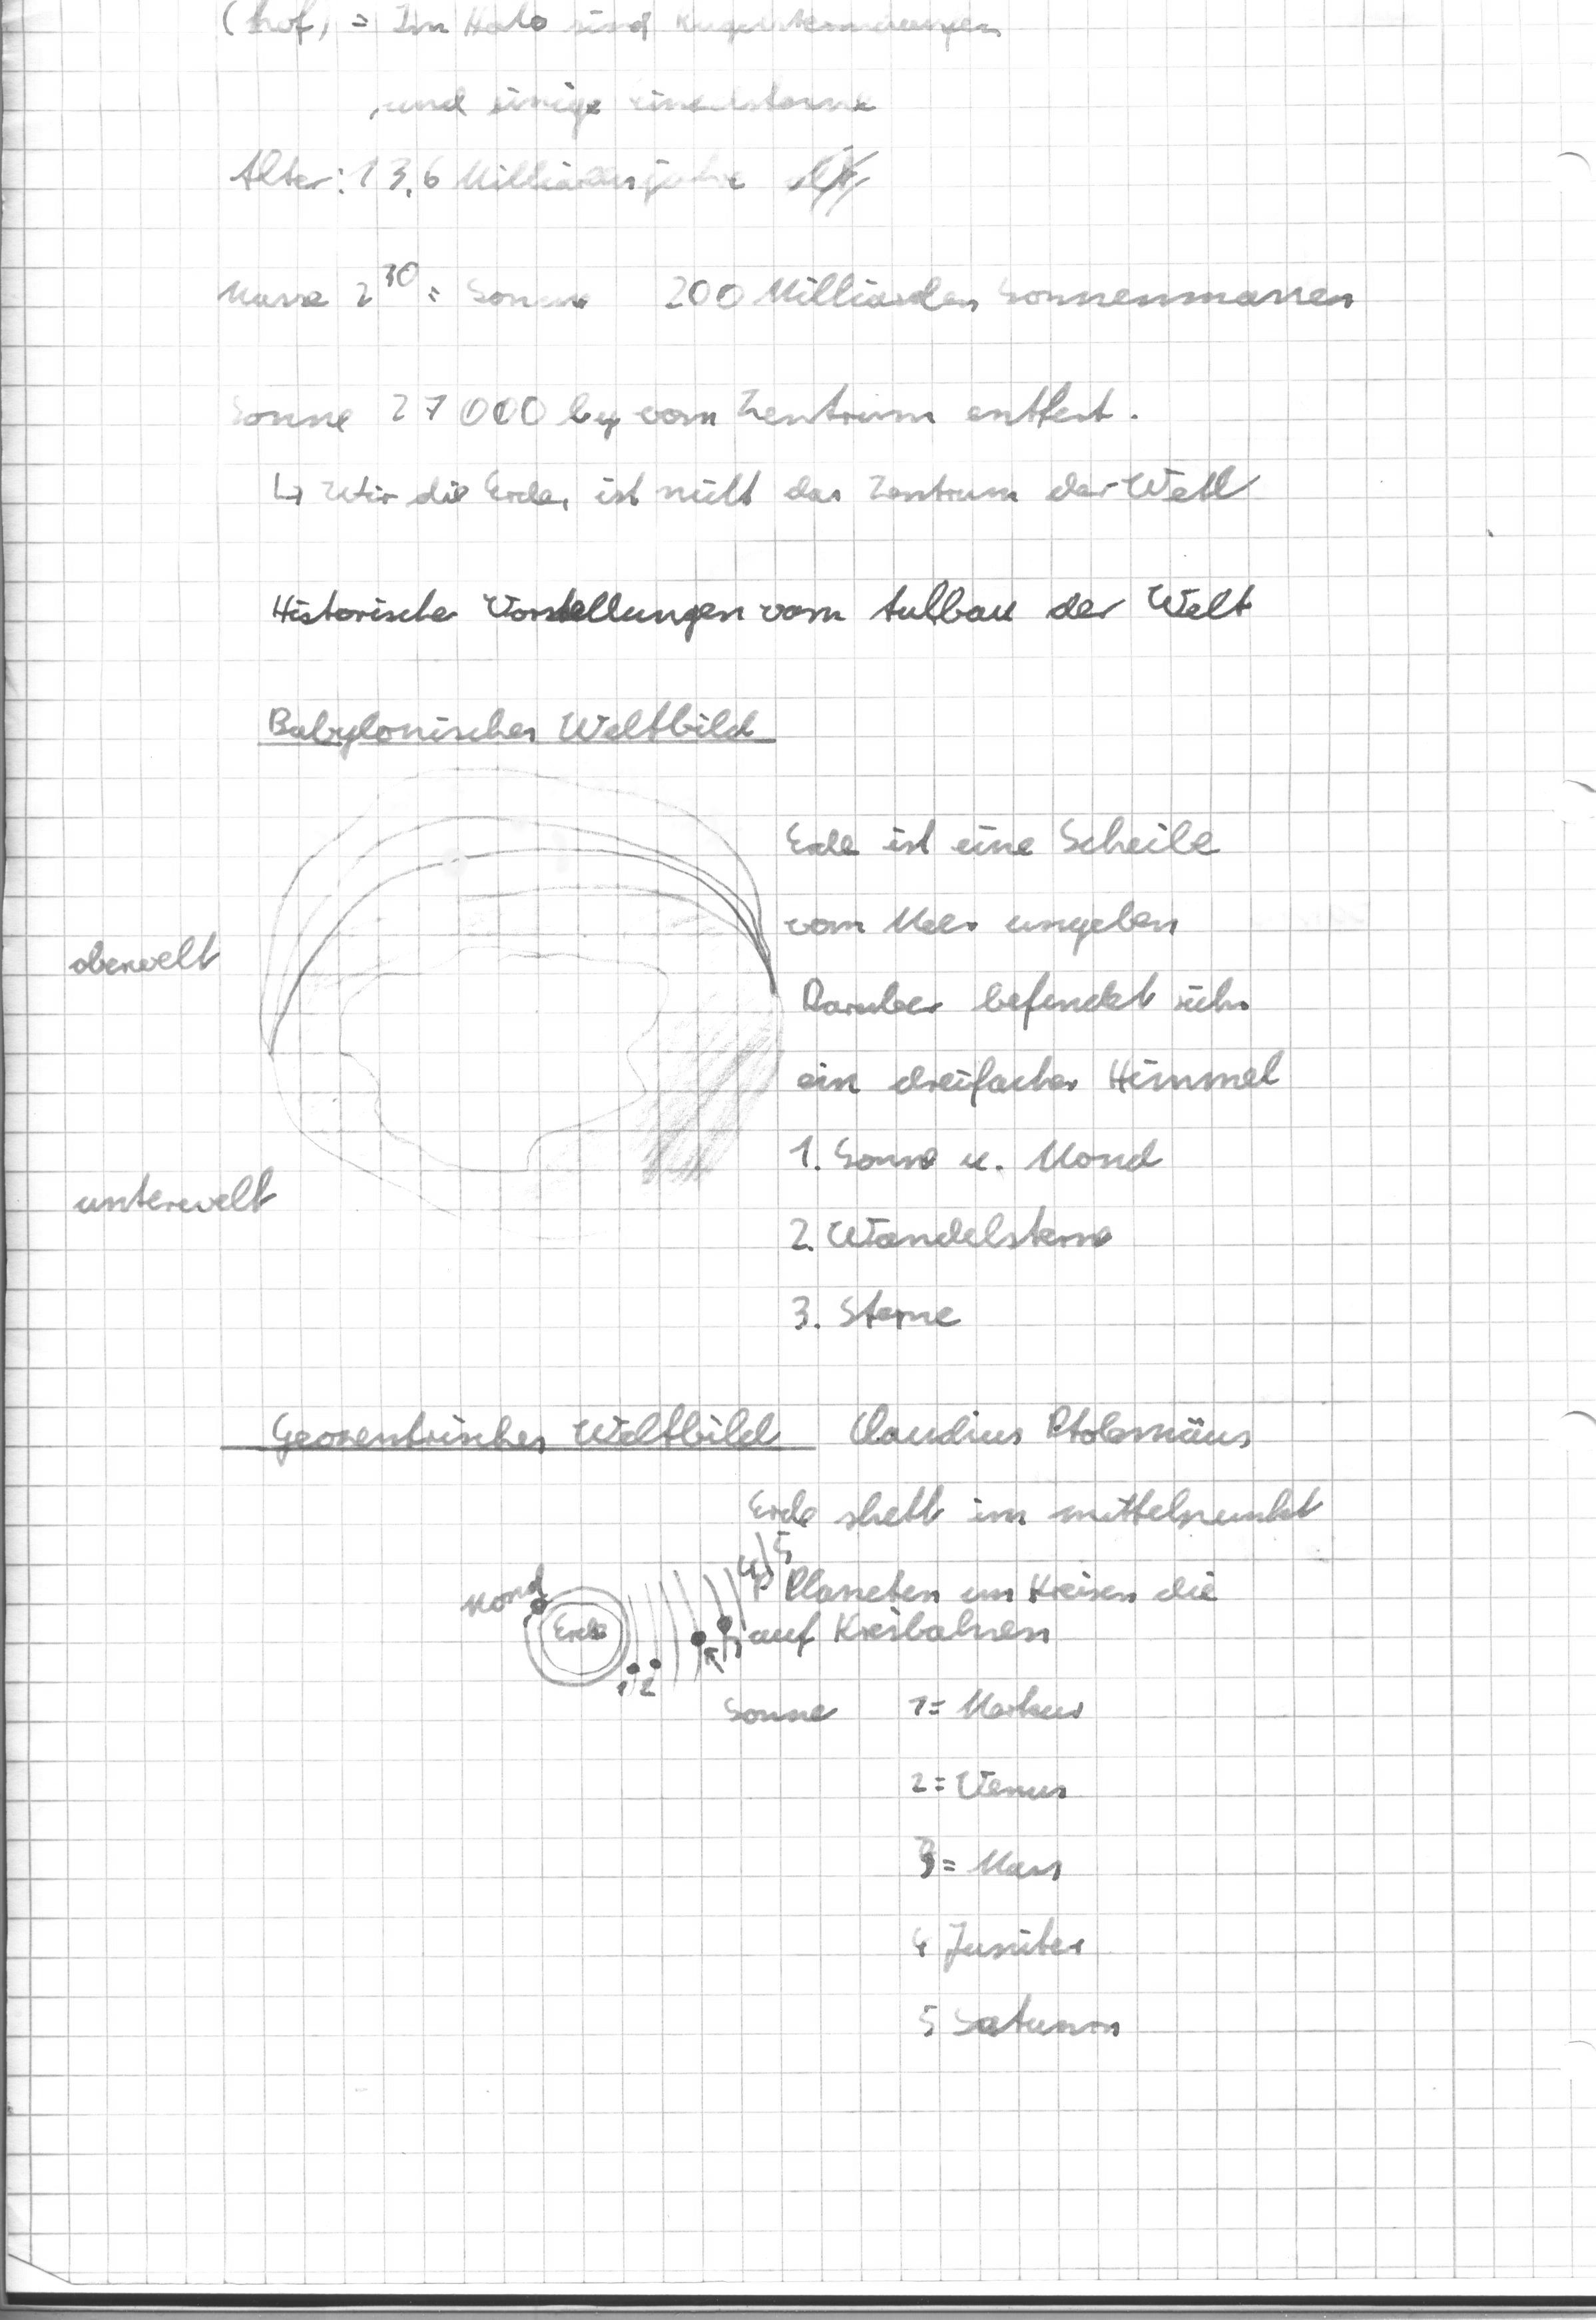 (hof) = Im Halo sind Kugelsternhaufen
und einige einzelsterne
Alter: 13,6 Milliarden jahre
Masse 2³⁰ = Sonne 200 Milliarden Sonnenmassen
Sonne 27000 ly vom Zentrum entfert.
↳ Wir die Erde, ist nicht das Zentrum der Welt
Historische Vorstellungen vom Aufbau der Welt
Babylonisches Weltbild
Erde ist eine Scheibe
vom Meer umgeben
oberwelt
Darüber befindet sich
ein dreifacher Himmel
1. Sonne u. Mond
unterwelt
2. Wandelsterne
3. Sterne
Geozentrisches Weltbild Claudius Ptolemäus
Erde steht im mittelpunkt
4 5
Mond
Planeten um Kreisen die
Erde
auf Kreisbahnen
1 2 3
Sonne 1= Merkur
2= Venus
3= Mars
4 Jupiter
5 Saturn